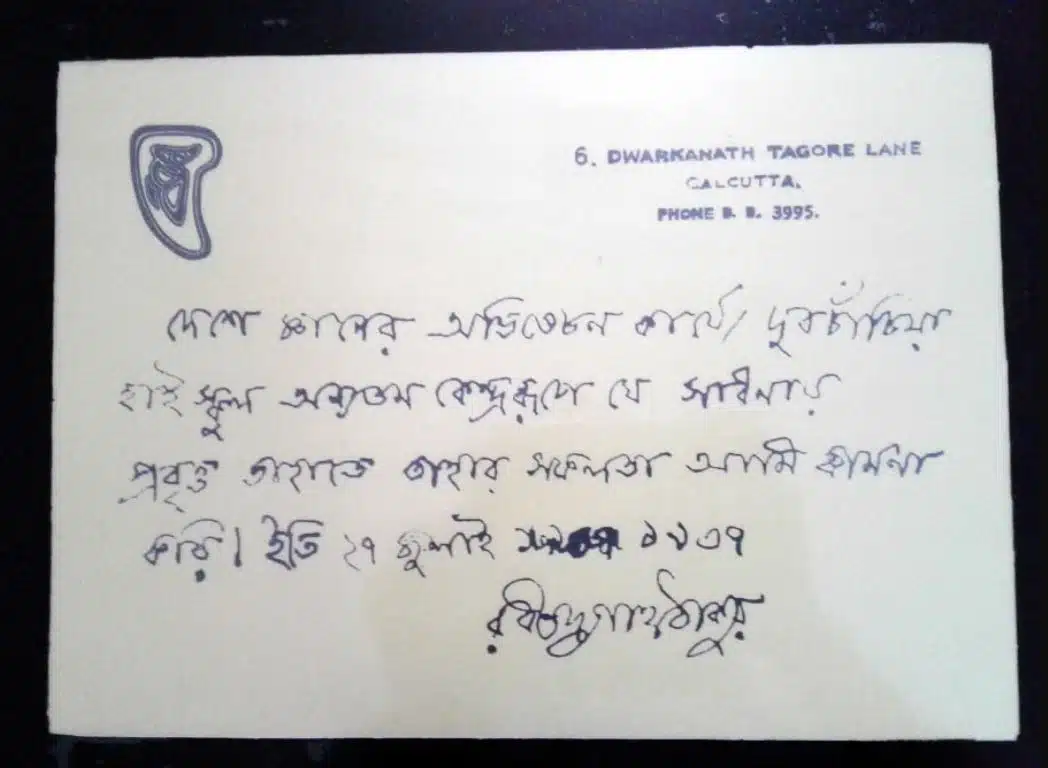 6. DWARKANATH TAGORE LANE
CALCUTTA.
PHONE B. B. 3995.
দেশে জ্ঞানের অভিষেচন কার্যে দুবচাঁচিয়া
হাই স্কুল অন্যতম কেন্দ্ররূপে যে সাধনায়
প্রবৃত্ত তাহাতে তাহার সফলতা আমি কামনা
করি। ইতি ২৭ জুলাই ১৯৩৭
রবীন্দ্রনাথ ঠাকুর